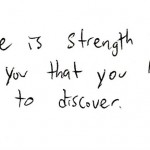 e is strength
you that you
to discover.